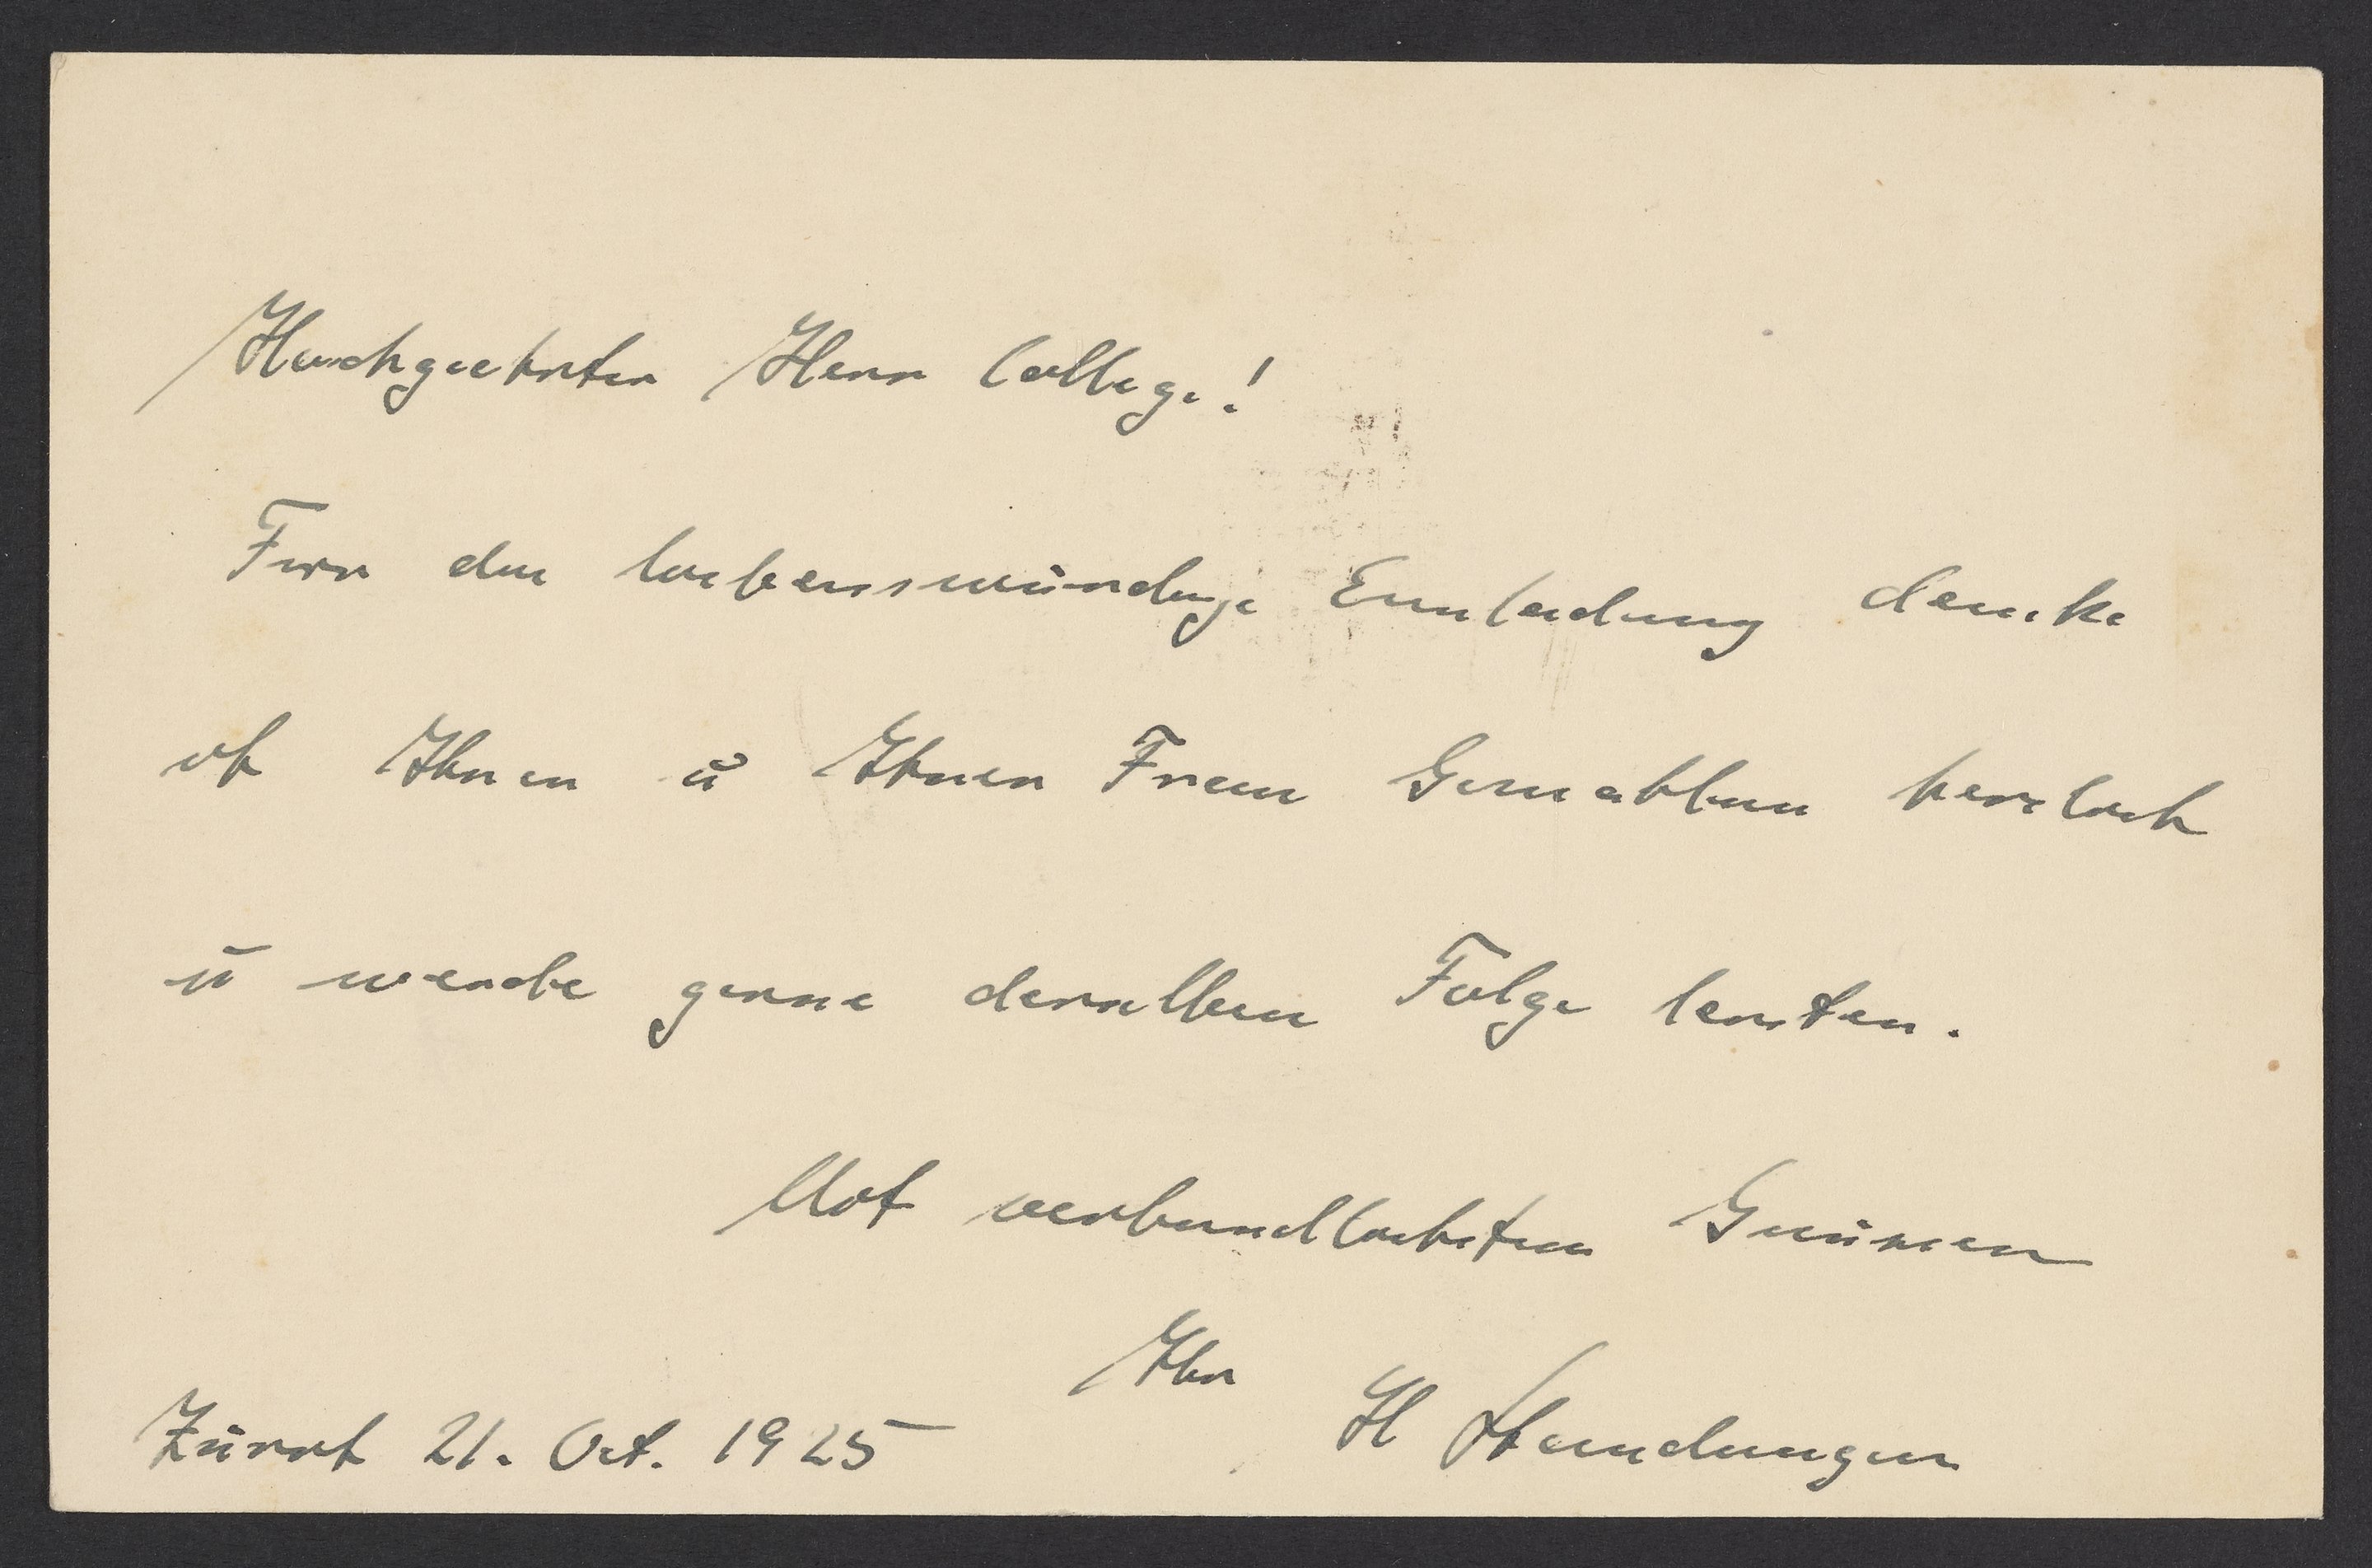 Hochgeehrter Herr College!
Für die liebenswürdige Einladung danke
ich Ihnen u Ihrer Frau Gemahlin herzlich
u werde gerne derselben Folge leisten.
Mit verbindlichsten Grüssen
Ihr
H Staudinger
Zürich 21. Oct. 1925